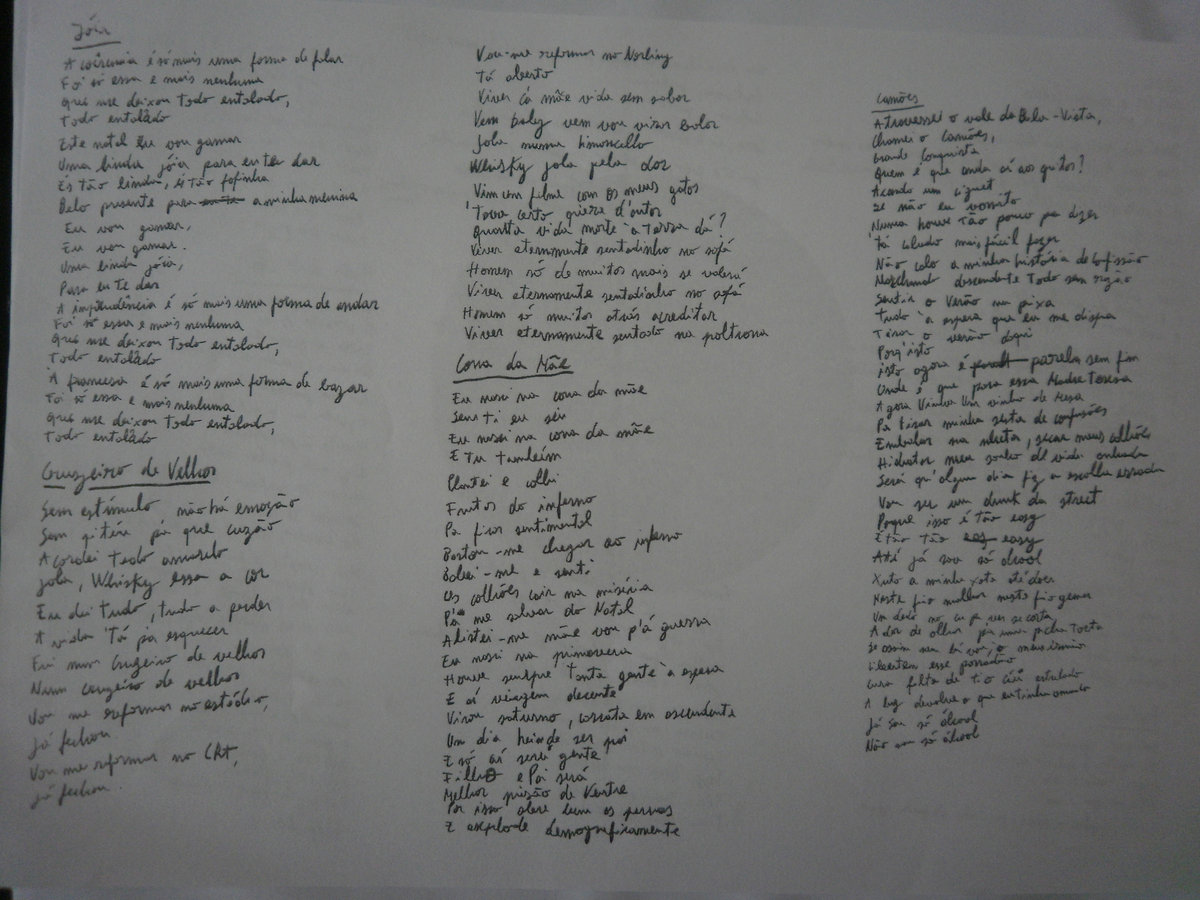 Jóia
A coerência é só mais uma forma de falar
Foi só essa e mais nenhuma
Que me deixou todo entalado,
Todo entalado
Este natal Eu vou gamar
Uma linda jóia para eu te dar
És tão linda, és tão fofinha
Belo presente para a minha menina
Eu vou gamar,
Eu vou gamar.
Uma linda jóia,
Para eu te dar
A imprudência é só mais uma forma de andar
Foi só essa e mais nenhuma
Que me deixou todo entalado,
Todo entalado
À francesa é só mais uma forma de bazar
Foi só essa e mais nenhuma
Que me deixou todo entalado,
Todo entalado
Cruzeiro de Velhos
Sem estímulo não há emoção
Sem guitéu pá que
Acordei todo amarelo
Jola, Whisky essa a cor
Eu dei tudo, tudo a perder
A vida 'Tá pa esquecer
Fui num Cruzeiro de velhos
Num cruzeiro de velhos
Vou me reformar no estádio,
Já fechou
Vou me reformar no
Já fechou.
Vou-me reformar no
Tá aberto
Viver cá mãe vida sem sabor
Vem baby vem vou virar bolor
Jola mesmo limoncello
Whisky jola pela dor
Vim um filme com os meus gatos
'Tava certo d'autor
Quanta vida morte a Terra dá?
Viver eternamente sentadinho no sofá
Homem só de muitos mais se valerá
Viver eternamente sentadinho no sofá
Homem só muitos atrás acreditar
Viver eternamente sentado na poltrona
Cona da Mãe
Eu nasci na cona da mãe
Sem ti eu sei
Eu nasci na cona da mãe
E tu também
Plantei e colhi
Frutos do inferno
Pa ficar sentimental
Bastou-me chegar ao inferno
Babei-me e senti
Os colhões cair na miséria
P'a me salvar do Natal
Alistei-me mãe vou p'á guerra
Eu nasci na primavera
Houve sempre tanta gente à espera
E aí viagem decente
Virou saturno, em ascendente
Um dia hei de ser pai
E só aí serei gente
Filho e Pai será
Melhor prisão de Ventre
Por isso abre bem as pernas
E explode demograficamente
Camões
Atravessei o vale da Bela-Vista,
Chamei o Camões,
Grande Conquista
Quem é que anda aí aos gritos?
Acendo um ciguet
Se não eu vomito
Nunca houve tão pouco pa dizer
'tá calado mais fácil fazer
Não calo a minha história de confissão
descendente todo sem
Sentir o Verão na
Tudo à espera que eu me dispa
Tirar o verão daqui
Porq'isto
isto agora é parede sem fim
Onde é que para essa Madre Teresa
Agora Vinha Um vinho de Mesa
Pa tirar minha sesta de confusões
Embalar na sarjeta, secar meus colhões
Hidratar meu sonho de vida
Será qu'algum dia fiz a escolha errada
Vou ser um drunk da street
Porque isso é tão easy
É tão tão easy
Até já sou só álcool
Até doer
Neste fio
Um dedo no cu pa ver se
A dor de olhar pa uma picha torta
Se assim
Libertem esse
falta de
A luz
Já sou só álcool
Não sou só álcool